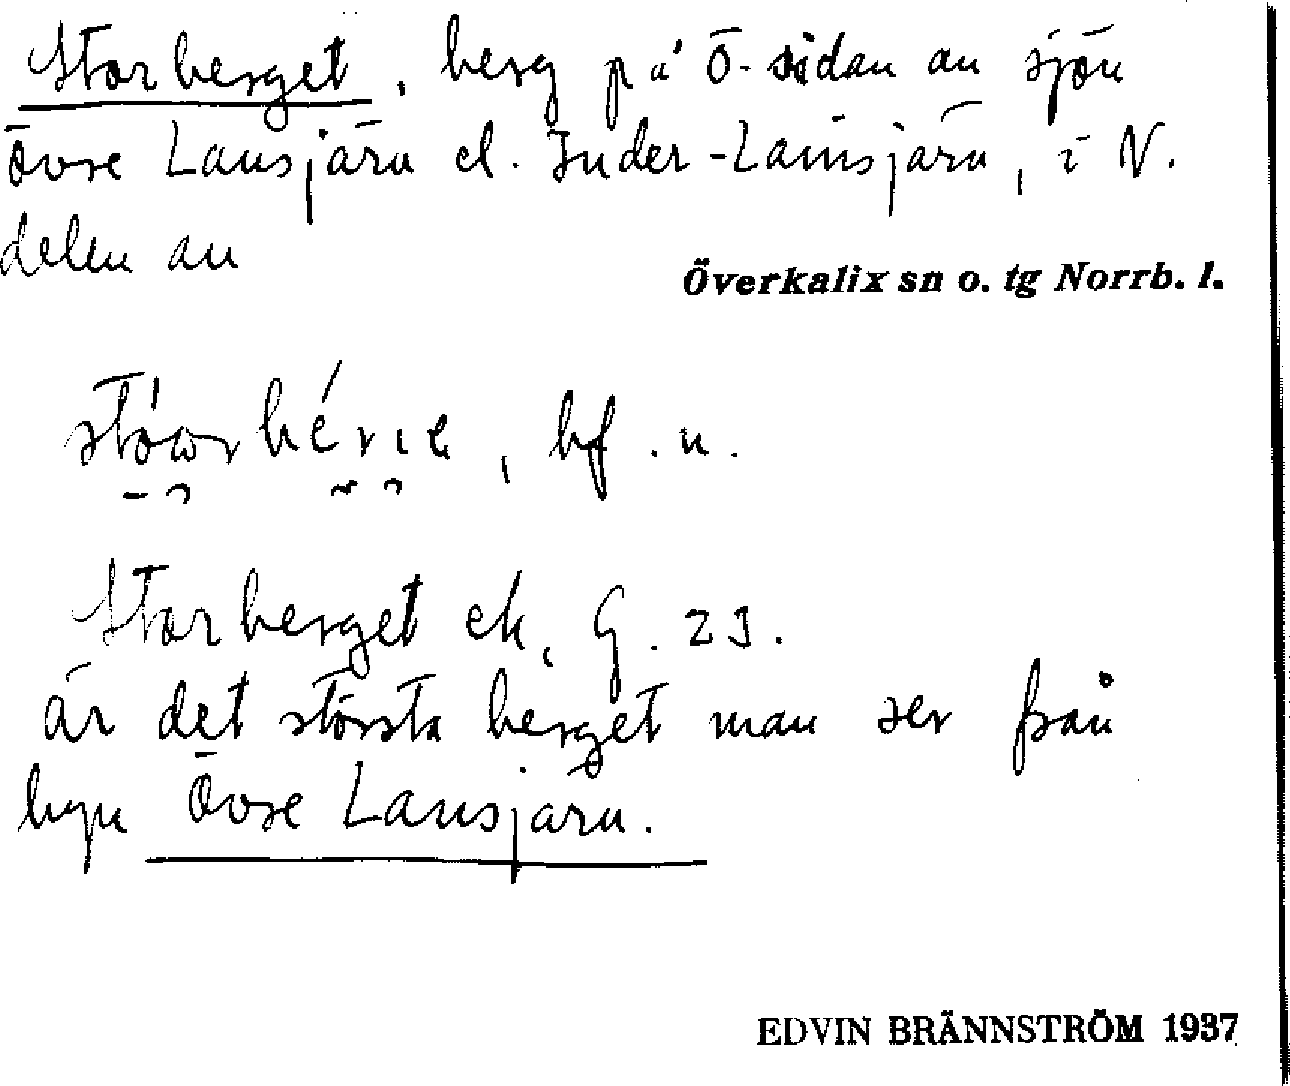 Storberget, berg på Ö-sidan av sjön
Övre Lansjärv el. Inder-Lainsjärv, i N.
delen av
Överkalix sn o. tg Norrb. l.
, bf. n.
Storberget ek, G. 23.
är det största berget man ser från
byn Övre Lansjärv.
EDVIN BRÄNNSTRÖM 1937